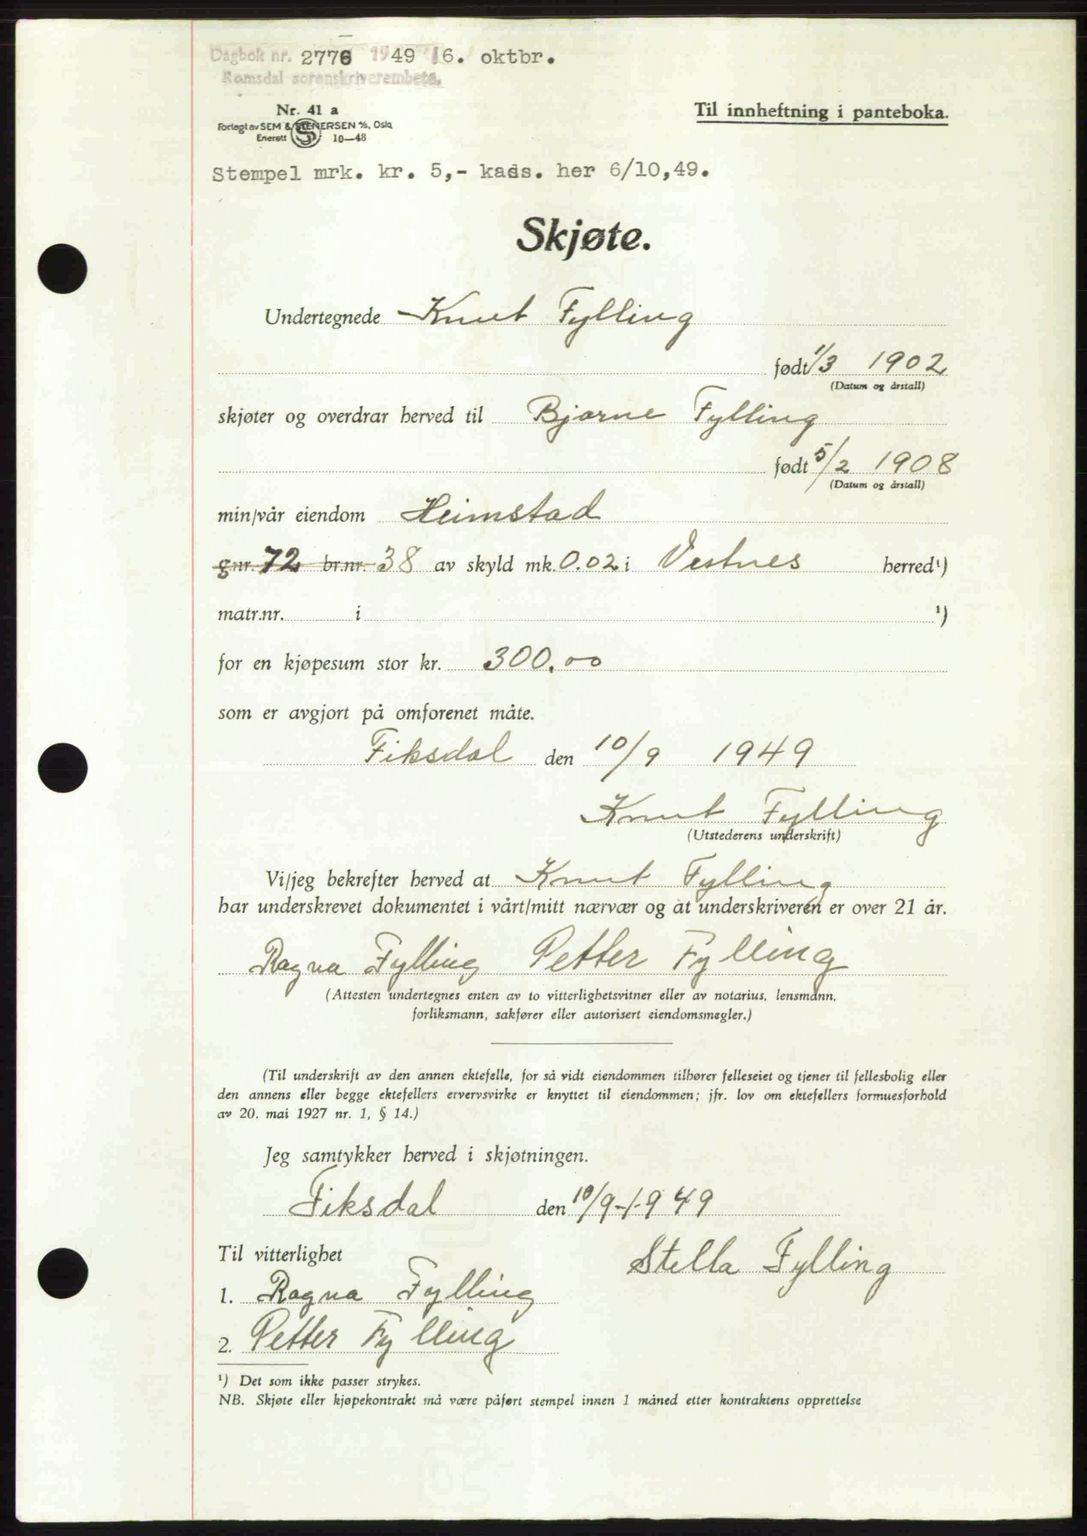 Dagbok nr. 2776 1949 6. oktbr.
Romsdal sorenskriverembete.
Nr. 41 a
Forlagt av SEM & STENERSEN A/S, Oslo
Enerett 10—48
Til innheftning i panteboka.
Stempel mrk. kr. 5,- kass. her 6/10,49.
Skjøte.
Undertegnede Knut Fylling
født 1/3 1902
(Datum og årstall)
skjøter og overdrar herved til Bjarne Fylling
født 5/2 1908
(Datum og årstall)
min/vår eiendom Heimstad
gnr. 72 br.nr. 38 av skyld mk. 0.02 i Vestnes herred¹)
matr.nr. i ¹)
for en kjøpesum stor kr. 300,00
som er avgjort på omforenet måte.
Fiksdal den 10/9 1949
Knut Fylling
(Utstederens underskrift)
Vi/jeg bekrefter herved at Knut Fylling
har underskrevet dokumentet i vårt/mitt nærvær og at underskriveren er over 21 år.
Ragna Fylling Petter Fylling
(Attesten undertegnes enten av to vitterlighetsvitner eller av notarius, lensmann,
forliksmann, sakfører eller autorisert eiendomsmegler.)
(Til underskrift av den annen ektefelle, for så vidt eiendommen tilhører felleseiet og tjener til fellesbolig eller
den annens eller begge ektefellers ervervsvirke er knyttet til eiendommen; jfr. lov om ektefellers formuesforhold
av 20. mai 1927 nr. 1, § 14.)
Jeg samtykker herved i skjøtningen.
Fiksdal den 10/9-1949
Til vitterlighet
Stella Fylling
1. Ragna Fylling
2. Petter Fylling
¹) Det som ikke passer strykes.
NB. Skjøte eller kjøpekontrakt må være påført stempel innen 1 måned etter kontraktens opprettelse